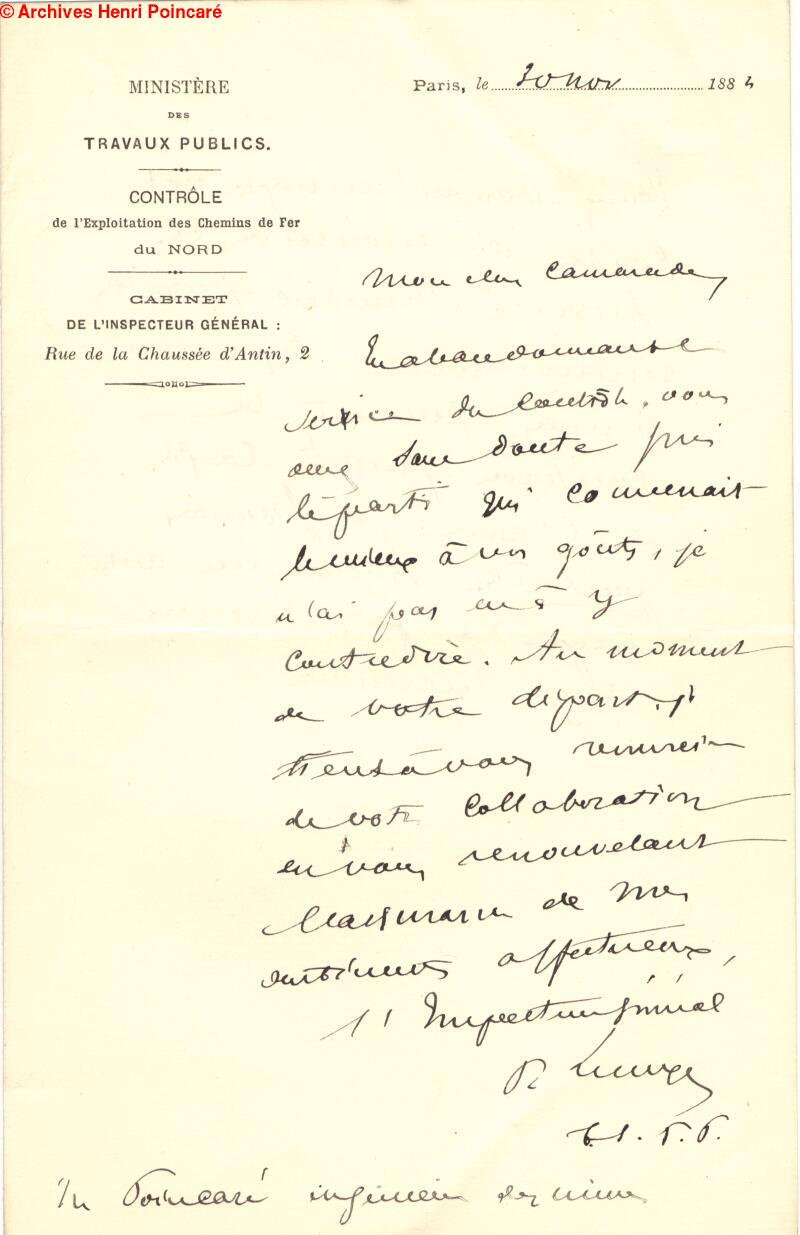 © Archives Henri Poincaré
MINISTÈRE
DES
TRAVAUX PUBLICS.
CONTRÔLE
de l'Exploitation des Chemins de Fer
du NORD
CABINET
DE L'INSPECTEUR GÉNÉRAL :
Rue de la Chaussée d'Antin, 2
Paris, le 30 nov 1884
Mon cher Camarade,
En abandonnant le
service du Contrôle, vous
avez sans doute pris
le parti qui convenait
le mieux à vos goûts, je
n'ai pas eu à y
contredire. Au moment
de votre départ, je
tiens à vous remercier
de votre collaboration
en vous renouvelant
l'assurance de mes
sentiments affectueux,
l'Inspecteur général
Mr Poincaré ingénieur des mines